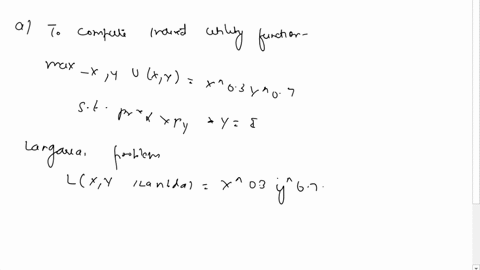 a) To compute indirect utility function-
max_x,y U(x,y) = x^0.3 y^0.7
s.t. px*x + py * y = 8
Largarian problem
L(x,y lambda) = x^0.3 y^0.7.